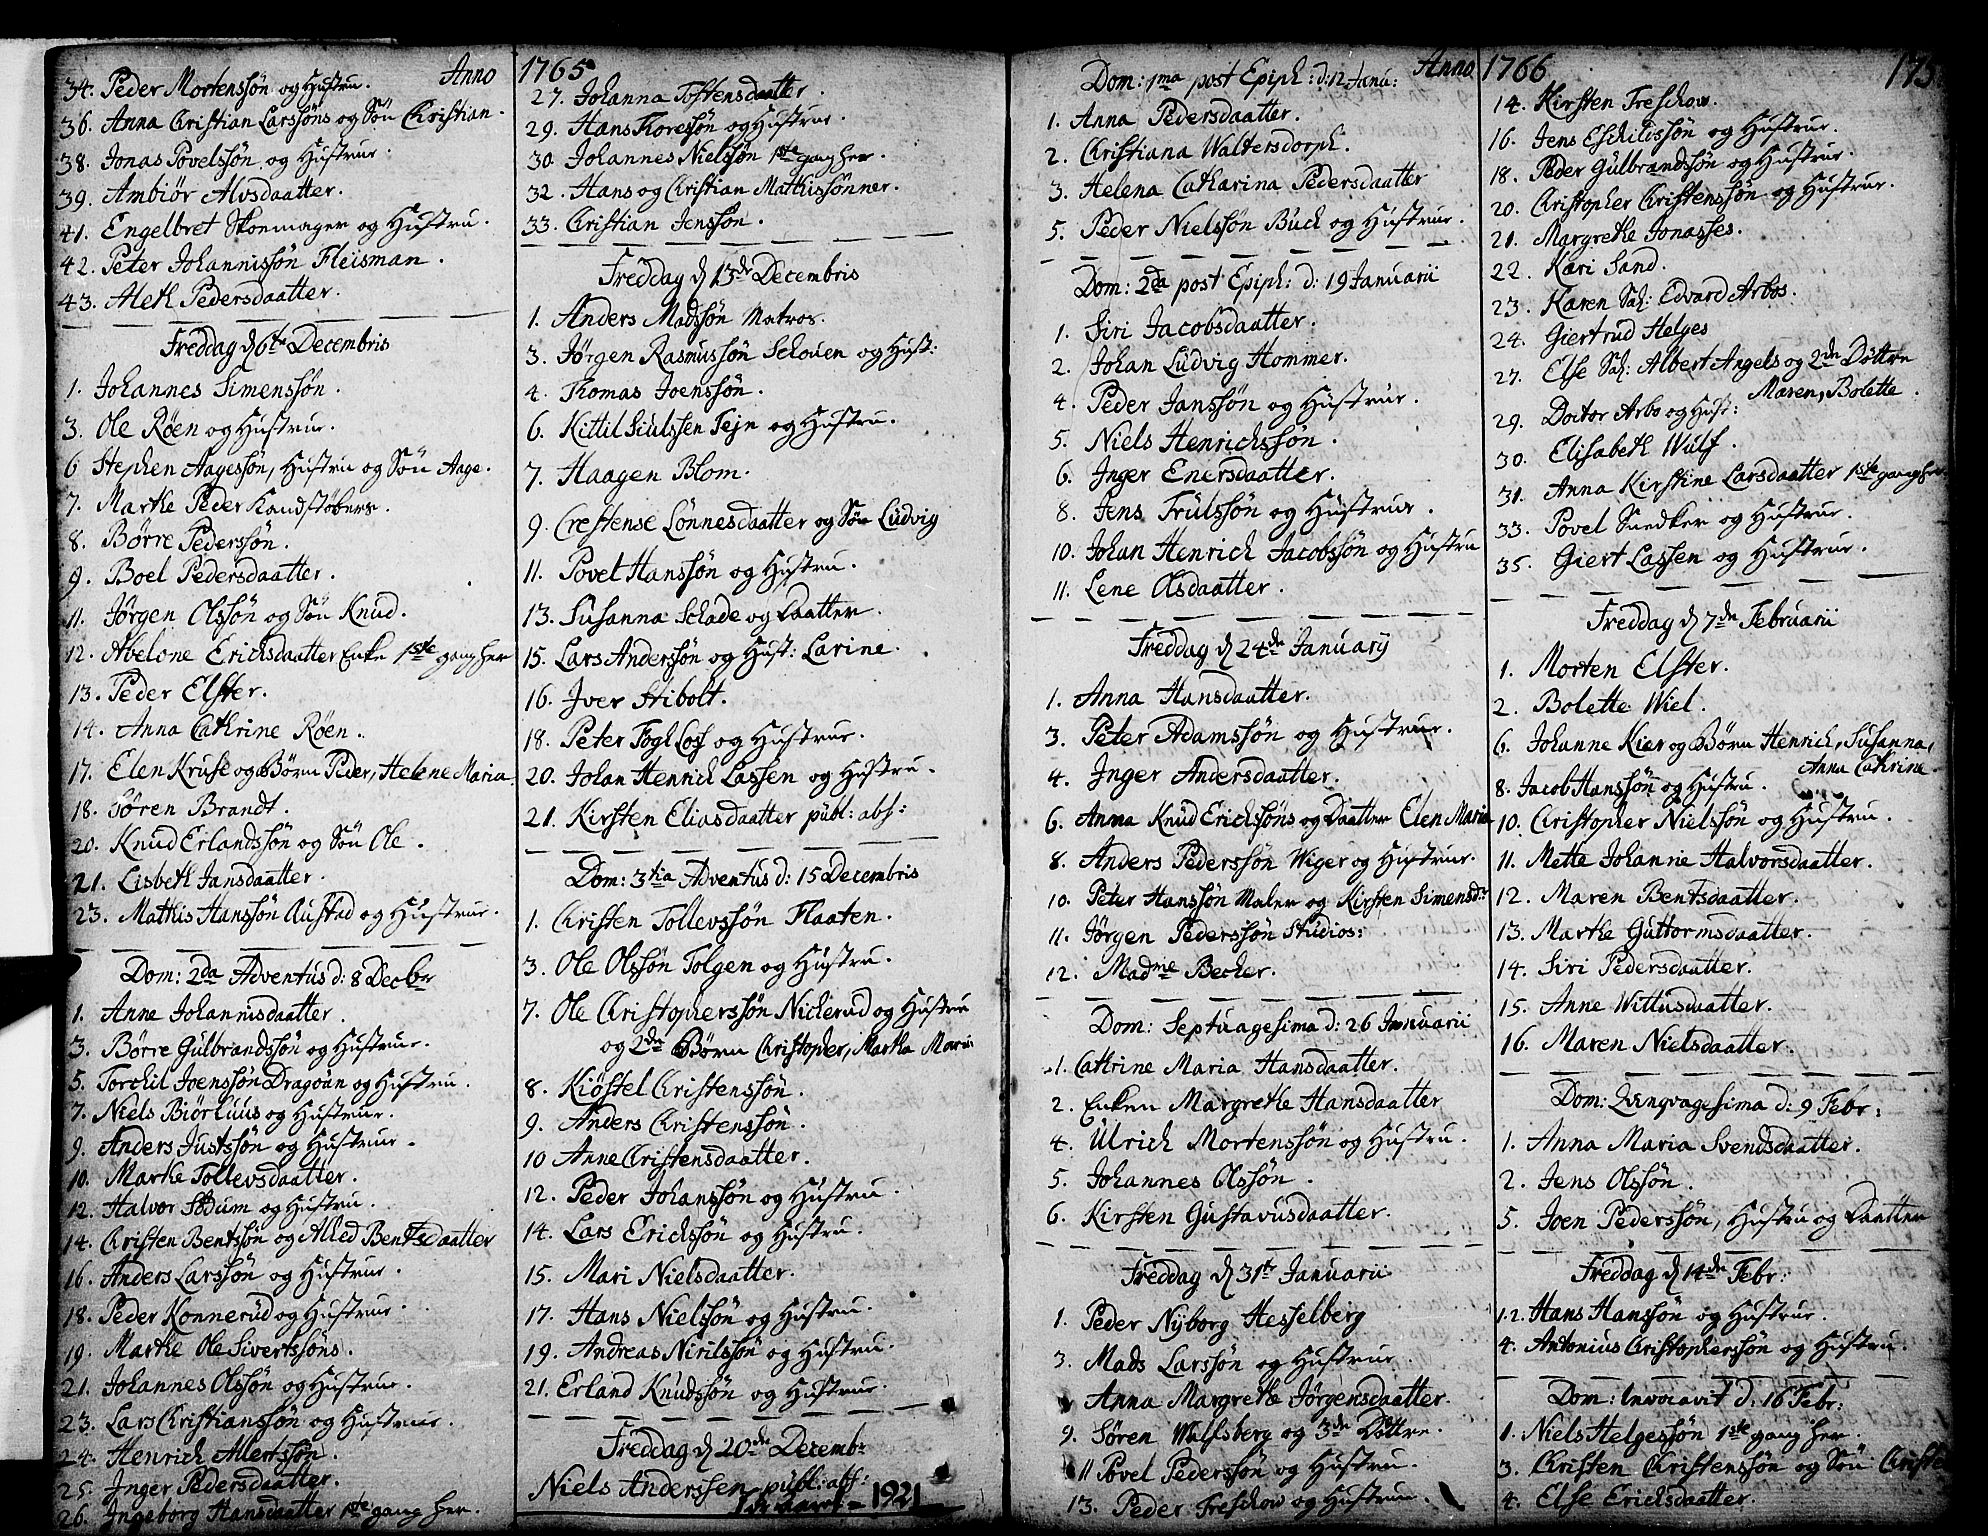 Anno 1765
34. Peder Mortenssøn og Hustru.
36. Anna Christian Larssøns og Søn Christian.
38. Jonas Povelssøn og Hustrue.
39. Ambiør Alvsdaatter.
41. Engelbret Skoemager og Hustru.
42. Peter Johannissøn Fleisman.
43. Aleth Pedersdaatter.
Freddag d 6te Decembris
1. Johannes Simenssøn.
3. Ole Røen og Hustrue.
6 Stephen Aagessøn, Hustru og Søn Aage.
7. Marthe Peder Kandstøbers.
8. Børre Pederssøn.
9. Boel Pedersdaatter.
11. Jørgen Olssøn og Søn Knud.
12. Abelone Ericksdaatter Enke 1ste gang her
13. Peder Elster.
14. Anna Cathrine Røen.
17. Elen Kruse og Børn Peder, Helene Maria
18. Søren Brandt.
20. Knud Erlandssøn og Søn Ole.
21. Lisbeth Jansdaatter.
23. Mathis Hanssøn Rustad og Hustrue.
Dom: 2da Adventus d: 8 Decbr
1. Anne Johannisdaatter.
3. Børre Gulbrandssøn og Hustrue.
5. Torchil Joenssøn Dragoun og Hustru.
7. Niels Biørluus og Hustrue.
9. Anders Justssøn og Hustrue.
10. Marthe Tollevsdaatter.
12. Halvor Sødum og Hustru.
14. Christen Bentssøn og Alhed Bentsdaatter
16. Anders Larssøn og Hustrue.
18. Peder Konnerud og Hustrue.
19. Marthe Ole Sivertssøns.
21. Johannes Olssøn og Hustrue.
23. Lars Christianssøn og Hustrue.
24. Henrich Alertssøn.
25. Inger Pedersdaatter.
26. Ingeborg Hansdaatter 1ste gang her.
27. Johanna Tostensdaatter.
29. Hans Thoressøn og Hustrue.
30. Johannes Nielssøn 1ste gang her.
32. Hans og Christian Mathissønner.
33. Christian Jenssøn.
Freddag d 13de Decembris
1. Anders Madssøn Matros.
3. Jørgen Rasmussøn Schouen og Hust:
4. Thomas Joenssøn.
6. Kittil Siulssen Tejn og Hustru.
7. Haagen Blom.
9. Crestense Lønnesdaatter og Søn Ludvig
11. Povel Hanssøn og Hustru.
13. Susanna Schade og Daatter.
15. Lars Anderssøn og Hust: Larine.
16. Iver Stibolt.
18. Peter Fogl og Hustrue.
20. Johan Henrich Lassen og Hustru.
21. Kirsten Eliasdaatter publ: abs:
Dom: 3tia Adventus d: 15 Decembris
1. Christen Tollevssøn Flaaten.
3. Ole Olssøn Tolgen og Hustru.
7. Ole Christopherssøn Nickerud og Hustru
og 2de Børn Christopher, Martha Maria
8. Kiøstel Christenssøn.
9. Anders Christenssøn.
10 Anne Christensdaatter.
12. Peder Johanssøn og Hustru.
14. Lars Erickssøn og Hustru.
15. Mari Nielsdaatter.
17. Hans Nielssøn og Hustru.
19. Andreas Nirilssøn og Hustru.
21. Erland Knudssøn og Hustrue.
Freddag d 20de Decembr
Niels Anderssen publ: abs:
1921
Anno 1766
Dom: 1ma post Epiph: d: 12 Janu:
1. Anna Pedersdaatter.
2. Christiana Waltersdorph.
3. Helena Catharina Pedersdaatter
5. Peder Nielssøn Buch og Hustrue.
Dom: 2da post Epiph: d: 19 Januarii
1. Siri Jacobsdaatter.
2. Johan Ludvig Hommer.
4. Peder Janssøn og Hustrue.
5. Niels Henrichssøn.
6. Inger Enersdaatter.
8. Jens Trulssøn og Hustrue.
10. Johan Henrich Jacobssøn og Hustru
11. Lene Olsdaatter.
Freddag d 24de January
1. Anna Hansdaatter.
3. Peter Adamssøn og Hustrue.
4. Inger Andersdaatter.
6. Anna Knud Erickssøns og Daatter Elen Maria
8. Anders Pederssøn Wiger og Hustrue.
10. Peter Hanssøn Maler og Kirsten Simensdr
11. Jørgen Pederssøn Studios:
12. Madme Becher.
Dom: Septuagesima d: 26 Januarii
1. Cathrine Maria Hansdaatter.
2. Enken Margrethe Hansdaatter
4. Ulrich Mortenssøn og Hustru.
5. Johannes Olssøn.
6. Kirsten Gustavusdaatter.
Freddag d 31te Januarii
1. Peder Nyborg Hesselberg
3. Mads Larssøn og Hustrue.
Anna Margrethe Jørgensdaatter.
9. Søren Wulfsberg og 3de Døttre.
11 Povel Pederssøn og Hustru.
13. Peder Treschow og Hustrue.
173
14. Kirsten Treschow.
16. Jens Eschildssøn og Hustrue.
18. Peder Gulbrandssøn og Hustrue.
20. Christopher Christenssøn og Hustrue.
21. Margrethe Jonasses.
22. Kari Sand.
23. Karen Sal: Edvard Arbos.
24. Giertrud Helges
27. Else Sal: Albert Angels og 2de Døttre
Maren, Bolette.
29. Doctor Arbo og Hust:
30. Elisabeth Wulf.
31. Anna Kirstine Larsdaatter 1ste gang her
33. Povel Snedker og Hustrue.
35. Giert Lassen og Hustrue.
Freddag d 7de Februarii
1. Morten Elster.
2. Bolette Wiel.
6. Johanne Kier og Børn Henrich, Susanna,
Anna Cathrine.
8. Jacob Hanssøn og Hustru.
10. Christopher Nielssøn og Hustru.
11. Mette Johanne Halvorsdaatter.
12. Maren Bentsdaatter.
13. Marthe Guttormsdaatter.
14. Siri Pedersdaatter.
15. Anne Wittusdaatter.
16. Maren Nielsdaatter.
Dom: Qvinqvagesima d: 9 Febr:
1. Anna Maria Svendsdaatter.
2. Jens Olssøn.
5. Joen Pederssøn, Hustru og Daatter
Freddag d 14de Febr:
1.2. Hans Hanssøn og Hustrue.
4. Antonius Christopherssøn og Hustru.
Dom: Invocavit d. 16 Febr:
1. Niels Helgessøn 1ste gang her.
3. Christen Christenssøn og Søn Christe
4. Else Ericksdaatter.